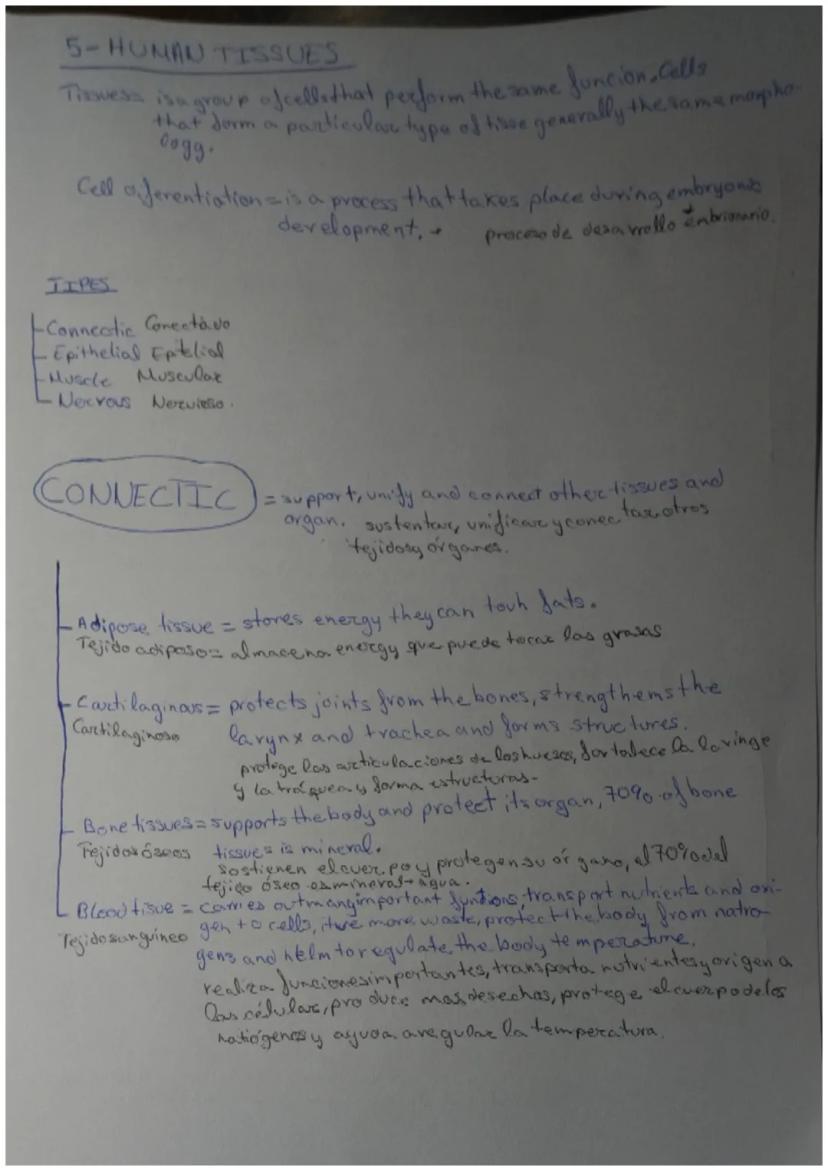 5- HUMAN TISSUES
Tissuess is a group of cells that perform the same funcion. Cells
that form a particular type of tisse generally the same morpho-
logg.
Cell diferentiation = is a process that takes place during embryonic
development. → proceso de desarrollo embrionario.
TIPES
- Connectic Conectavo
- Epithelial Epitelial
- Muscle Muscular
- Nervous Nervioso.
CONNECTIC = support, unify and connect other tissues and
organ. sustentar, unificar y conectar otros
tejidos y órganes.
- Adipose tissue = stores energy they can touh fats.
Tejido adiposo = almacena energy que puede tocar las grasas
- Cartilaginous = protects joints from the bones, strengthems the
Cartilaginoso larynx and trachea and forms structures.
protege las articulaciones de los huesos, fortalece la laringe
y la tráquea y forma estructuras.
- Bone tissues = supports the body and protect its organ, 70% of bone
Tejidos óseos tissues is mineral.
sostienen el cuerpo y protegen su órgano, el 70% del
tejido óseo es mineral + agua.
- Blood tisue = carries out many important funtions, transport nutrients and ori-
Tejido sanguíneo gen to cells, more waste, protect the body from natro-
gens and helm to regulate the body temperature.
realiza funciones importantes, transporta nutrientes y origen a
las células, produce mas desechos, protege el cuerpo de los
natiógenos y ayuda a regular la temperatura.